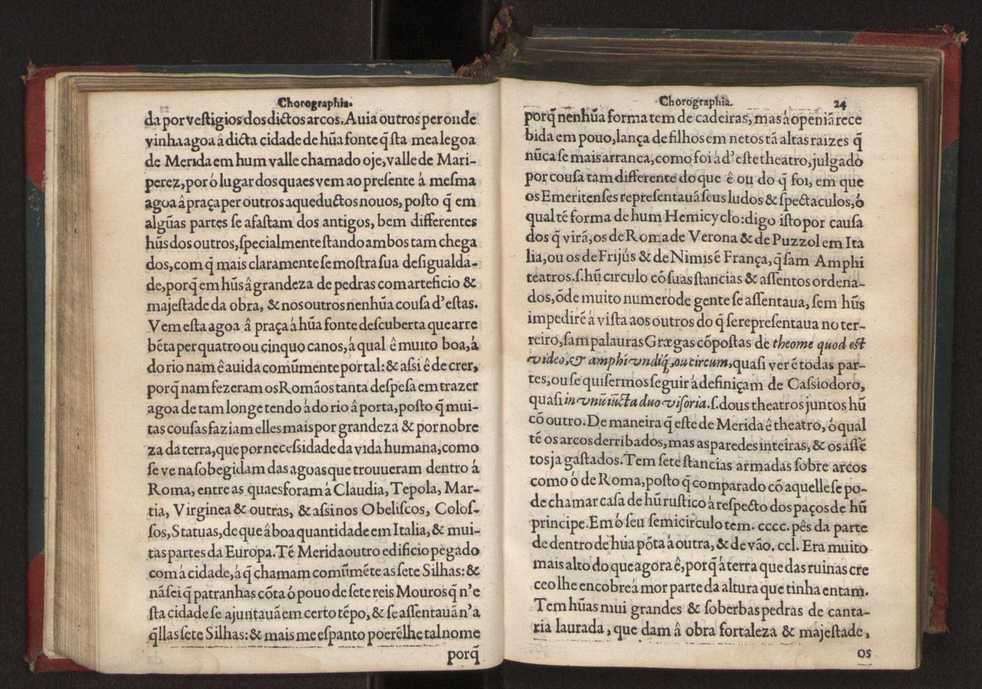 Chorographia.
da por vestigios dos dictos arcos. Auia outros per onde
vinha agoa á dicta cidade de hũa fonte q̃ sta mea legoa
de Merida em hum valle chamado oje, valle de Mari-
perez, por ó lugar dos quaes vem ao presente á mesma
agoa á praça per outros aqueductos nouos, posto q̃ em
algũas partes se afastam dos antigos, bem differentes
hũs dos outros, specialmente stando ambos tam chega
dos, com q̃ mais claramente se mostra sua desigualda-
de, porq̃ em hũs â grandeza de pedras com arteficio &
majestade da obra, & nos outros nenhũa cousa d'estas.
Vem esta agoa â praça á hũa fonte descuberta que arre
bẽta per quatro ou cinquo canos, á qual ê muito boa, á
do rio nam ê auida comũmente por tal: & assi ê de crer,
porq̃ nam fezeram os Romãos tanta despesa em trazer
agoa de tam longe tendo á do rio â porta, posto q̃ mui-
tas cousas faziam elles mais por grandeza & por nobre
za da terra, que por necessidade da vida humana, como
se ve na sobegidam das aguas que trouueram dentro á
Roma, entre as quaes foram á Claudia, Tepola, Mar-
tia, Virginea & outras, & assi nos Obeliscos, Colos-
sos, Statuas, de que â boa quantidade em Italia, & mui-
tas partes da Europa. Té Merida outro edificio pegado
com á cidade, á q̃ chamam comũmẽte as sete Silhas: &
nã sei q̃ patranhas cõta ó pouo de sete reis Mouros q̃ n'e
sta cidade se ajuntauã em certo tẽpo, & se assentauã n'a
q̃llas sete Silhas: & mais me espanto poerẽlhe tal nome
porq̃
Chorographia. 24
porq̃ nenhũa forma tem de cadeiras, mas á openiã rece
bida em pouo, lança de filhos em netos tã altas raizes q̃
nũca se mais arranca, como foi á d'este theatro, julgado
por cousa tam differente do que ê ou do q̃ foi, em que
os Emeritenses representauã seus ludos & spectaculos, ó
qual té forma de hum Hemicyclo: digo isto por causa
dos q̃ virã, os de Roma de Verona & de Puzzol em Ita
lia, ou os de Frijús & de Nimis ẽ França, q̃ sam Amphi
teatros. s. hũ circulo cõ suas stancias & assentos ordena-
dos, õde muito numero de gente se assentaua, sem hũs
impedirẽ á vista aos outros do q̃ se representaua no ter-
reiro, sam palauras Græegas cõpostas de theome quod est
video, & amphi vndiq̃, ou circum, quasi ver ẽ todas par-
tes, ou se quisermos seguir á definiçam de Cassiodoro,
quasi in vnũ iũcta duo visoria. s. dous theatros juntos hũ
cõ outro. De maneira q̃ este de Merida ê theatro, ó qual
té os arcos derribados, mas as paredes inteiras, & os assẽ
tos ja gastados. Tem sete stancias armadas sobre arcos
como ó de Roma, posto q̃ comparado cõ aquelle se po-
de chamar casa de hũ rustico á respecto dos paços de hũ
principe. Em ó seu semicirculo tem. cccc. pés da parte
de dentro de hũa põta á outra, & de vão. ccl. Era muito
mais alto do que agora ê, porq̃ â terra que das ruinas cre
ceo lhe encobre á mor parte da altura que tinha entam.
Tem hũas mui grandes & soberbas pedras de canta-
ria laurada, que dam â obra fortaleza & majestade,
os